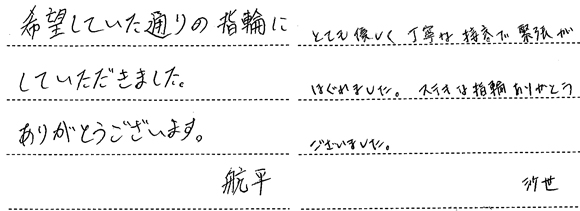 希望していた通りの指輪に
していただきました。
ありがとうございます。
航平
とても優しく丁寧な接客で緊張が
ほぐれました。ステキな指輪ありがとう
ございました。
沙世